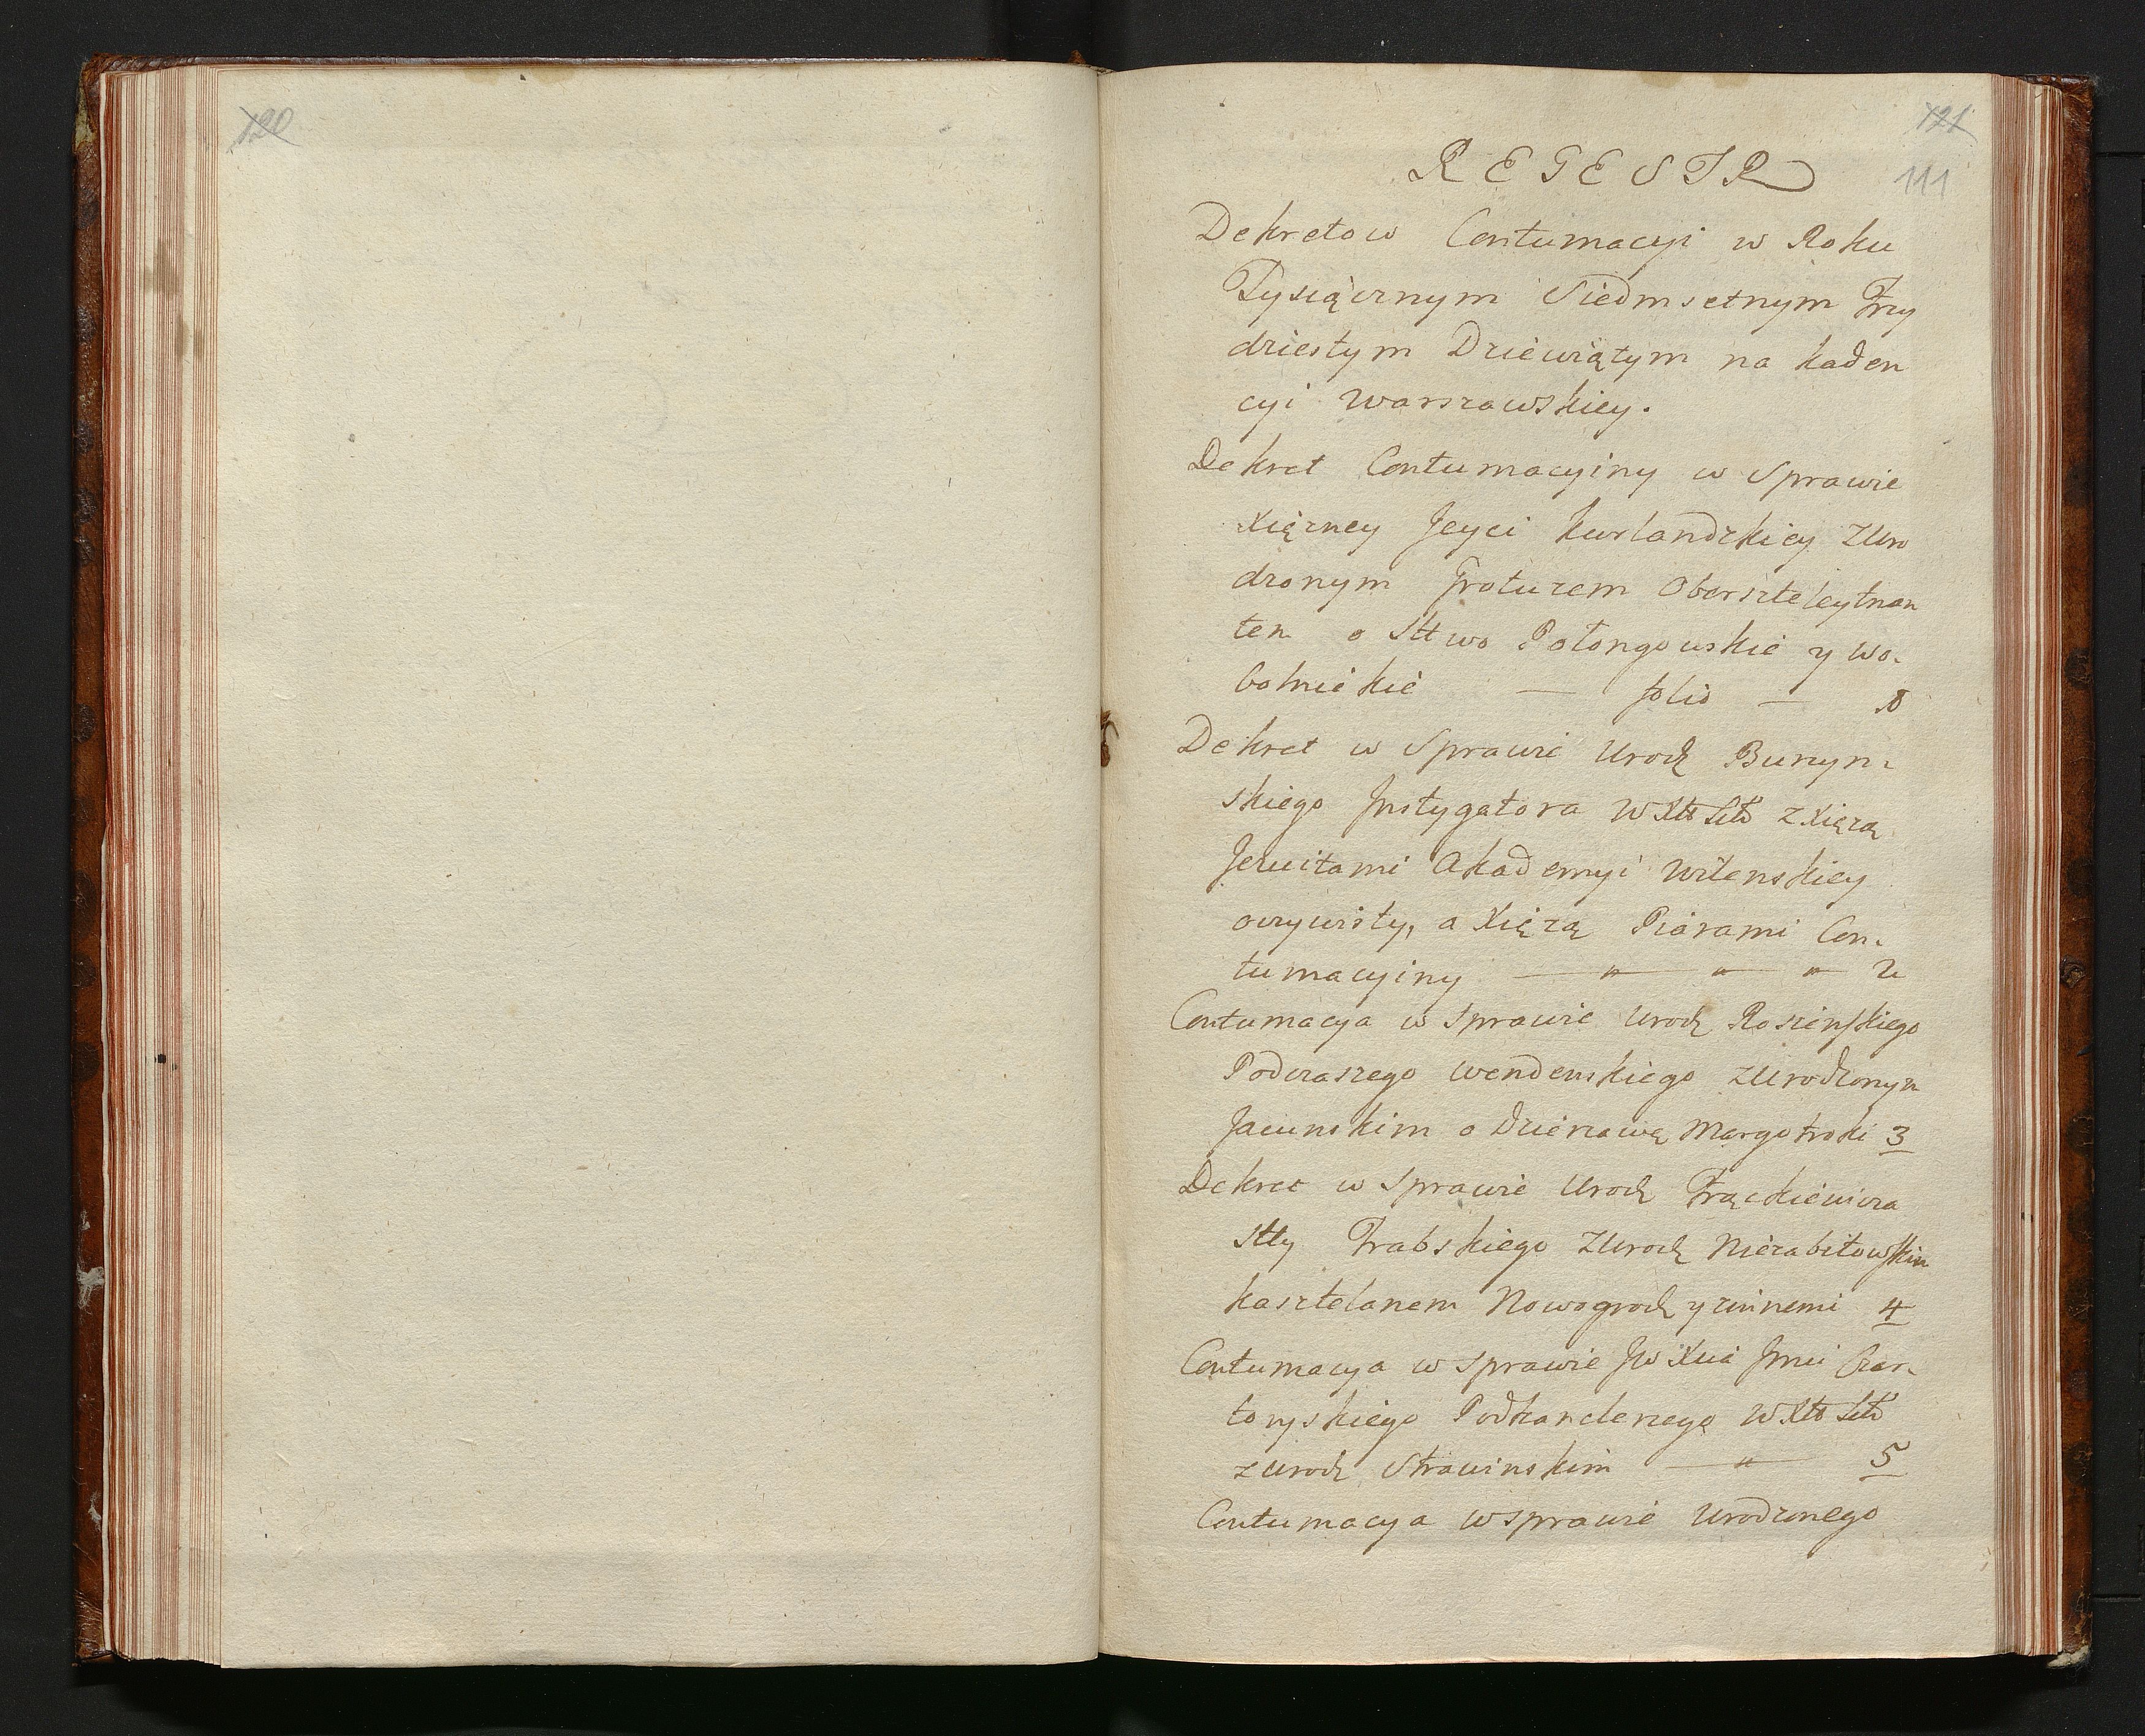 120
121
REGESTR
111
Dekretow Contumacyi w Roku
Tysiącznym Siedmsetnym Trzy
dziestym Dziewiątym na kaden
cyi Warszawskiey.
Dekret Contumacyiny w Sprawie
Xięzney Jeyci kurlandzkiey zUro
dzonym Oberszteleytnan
tem o Sttwo Połongowskie y Wo-
bolnickie — folio —
Dekret w Sprawie Urodz Bunyn-
skiego Instygatora WXttLitt z Xięzą
Jezuitami Akademyi Wilenskiey
oczywisty, a Xięzą Piarami Con-
tumacyiny — " — " — " — 2
Contumacya w Sprawie Urodz Roscinskiego
Podczaszego wendenskiego zUrodzonym
Jacunskim o Dzierzawę 3
Dekret w Sprawie Urodz Frąckiewicza
Stty Trabskiego zUrodz Niezabitowskim
kasztelanem Nowogrodz y zinnemi 4
Contumacya w Sprawie JW Xcia Jmci Czar-
toryskiego Podkanclerzego WXttLitt
z Urodz Strawinskim — " — 5
Contumacya wsprawie Urodzonego